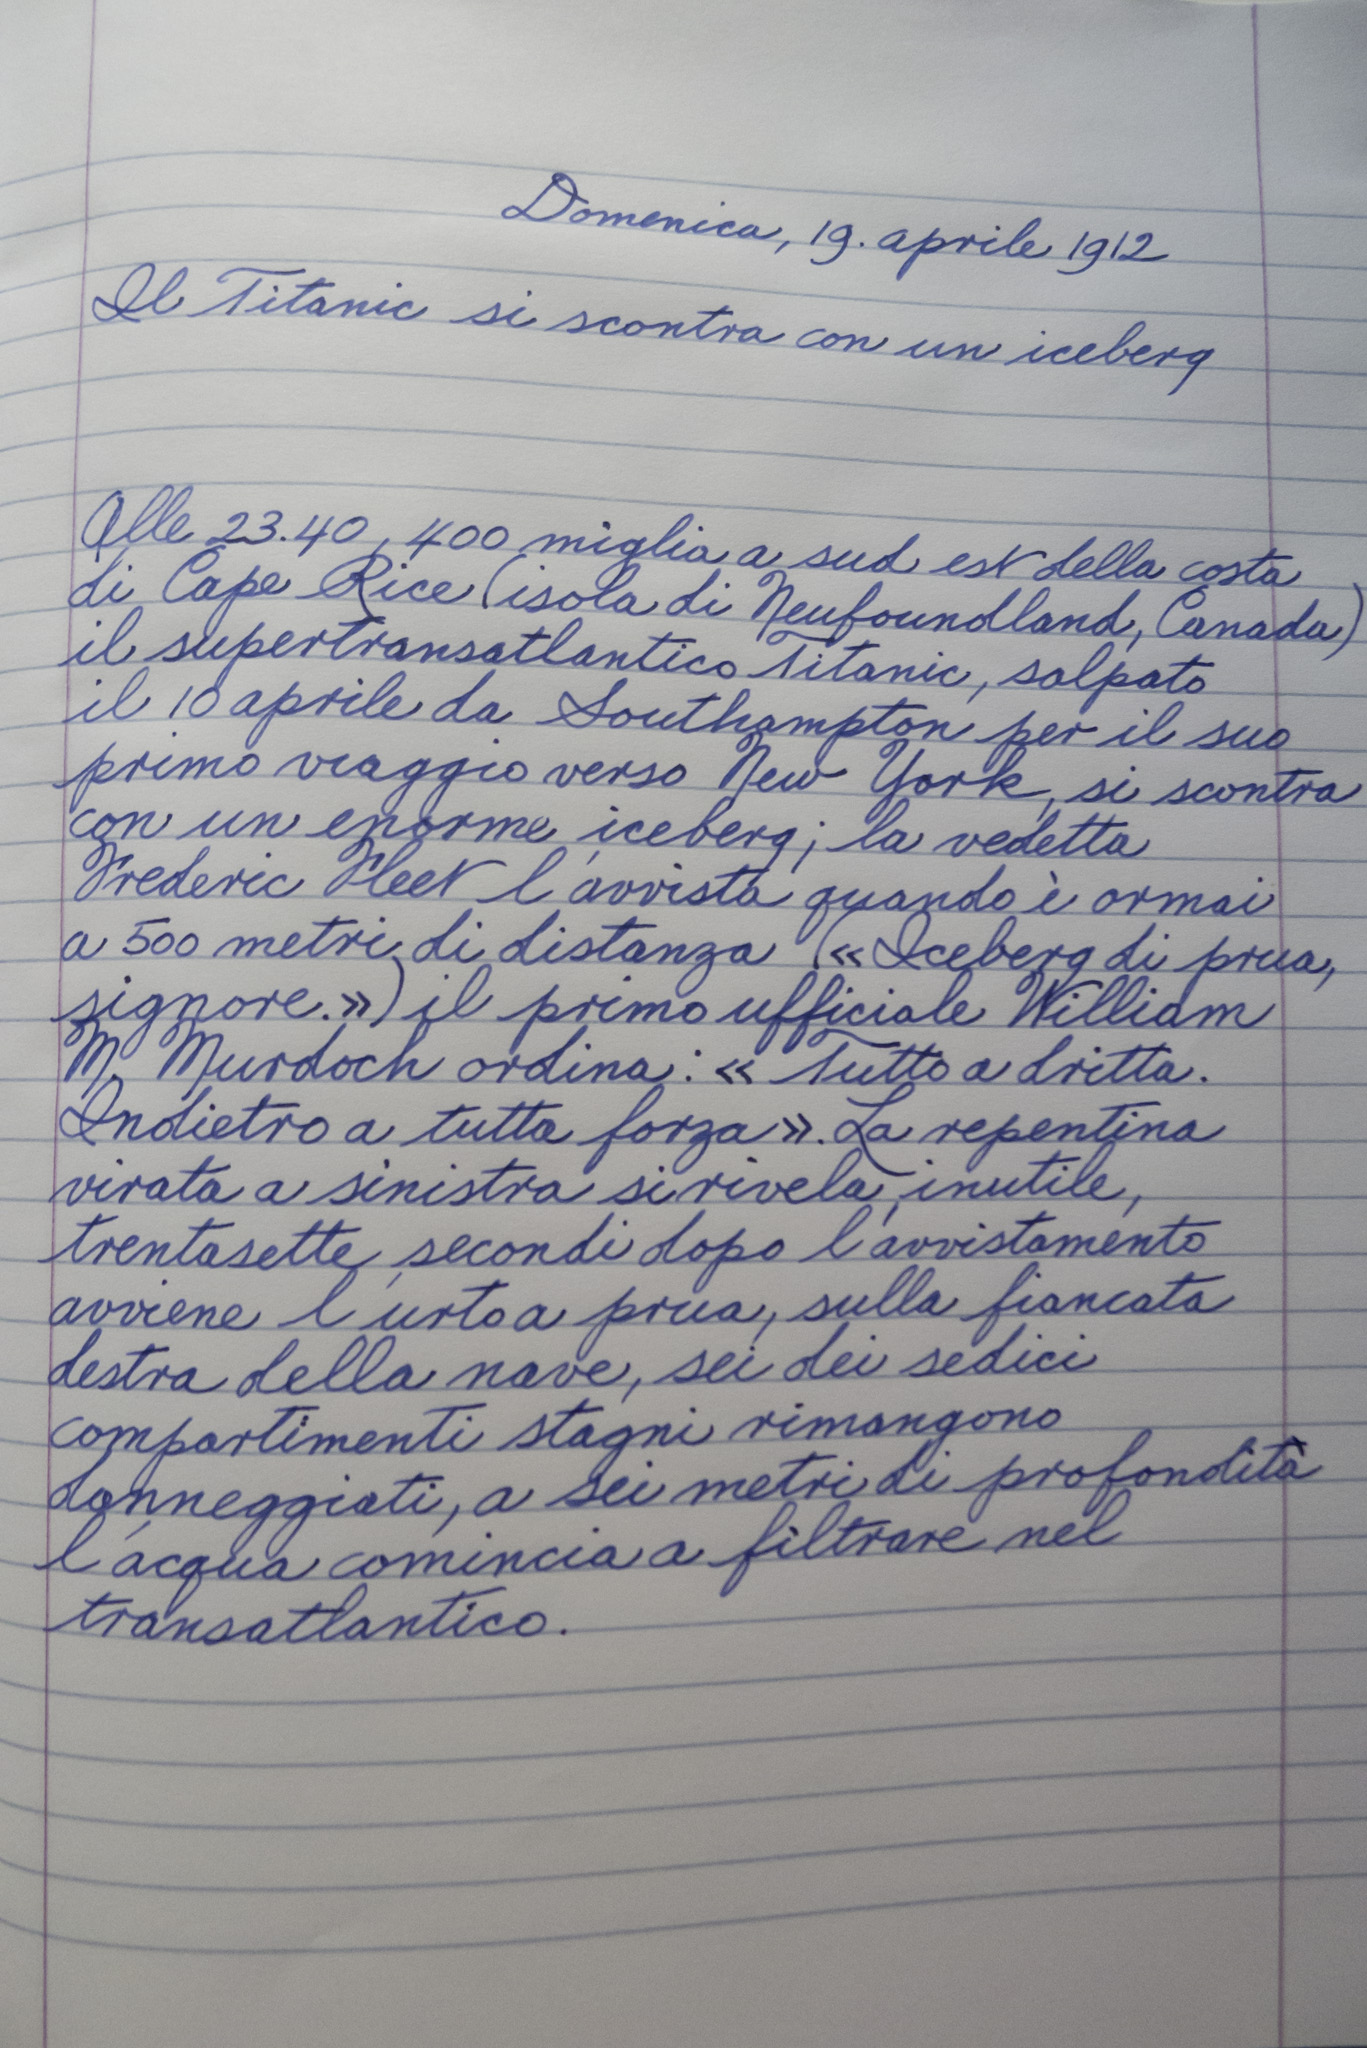 Domenica, 19. aprile 1912
Il Titanic si scontra con un iceberg
Alle 23.40, 400 miglia a sud est della costa
di Cape Rice (isola di Neufoundland, Canada)
il supertransatlantico Titanic, salpato
il 10 aprile da Southampton per il suo
primo viaggio verso New York, si scontra
con un enorme iceberg; la vedetta
Frederic Fleet l'avvista quando è ormai
a 500 metri di distanza («Iceberg di prua,
signore.») il primo ufficiale William
M. Murdoch ordina: «Tutto a dritta.
Indietro a tutta forza». La repentina
virata a sinistra si rivela inutile,
trentasette secondi dopo l'avvistamento
avviene l'urto a prua, sulla fiancata
destra della nave, sei dei sedici
compartimenti stagni rimangono
danneggiati, a sei metri di profondità
l'acqua comincia a filtrare nel
transatlantico.